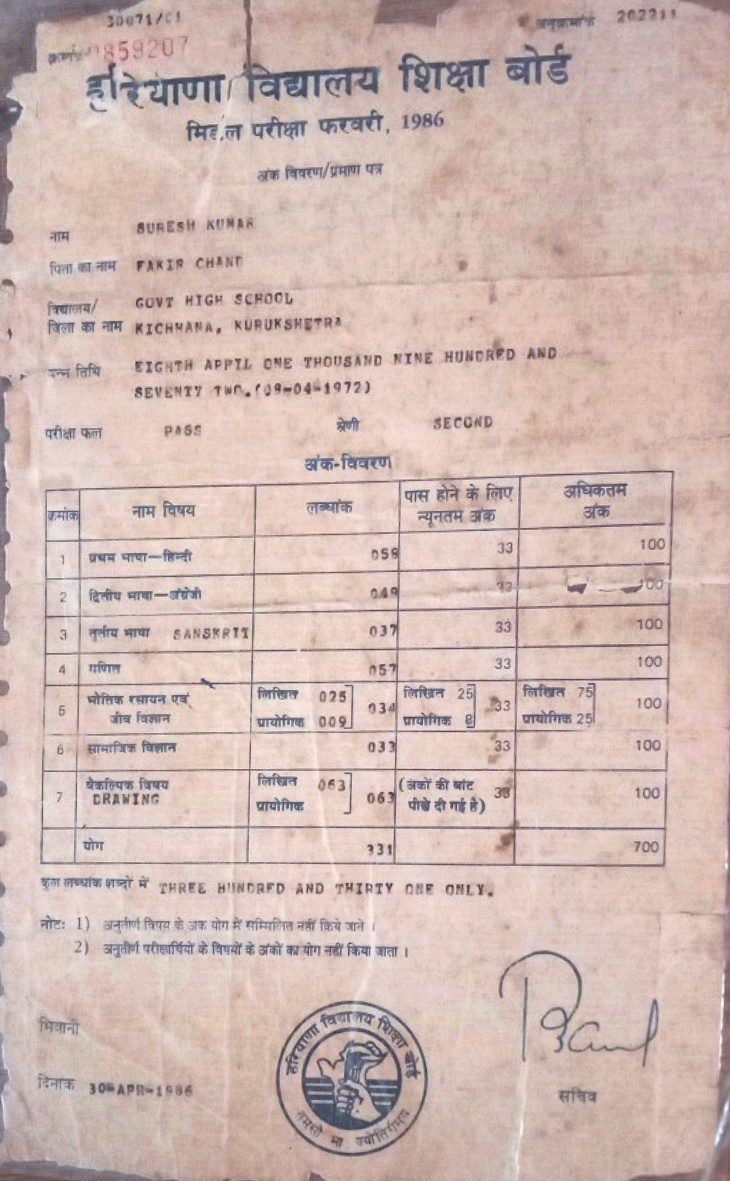 30071/C1
अनुक्रमांक 202211
क्रमांक 859207
हरियाणा विद्यालय शिक्षा बोर्ड
मिडिल परीक्षा फरवरी, 1986
अंक विवरण/प्रमाण पत्र
नाम SURESH KUMAR
पिता का नाम FAKIR CHAND
विद्यालय/ GOVT HIGH SCHOOL
जिला का नाम KICHHANA, KURUKSHETRA
जन्म तिथि EIGHTH APPIL ONE THOUSAND NINE HUNDRED AND
SEVENTY TWO.(08-04-1972)
परीक्षा फल PASS श्रेणी SECOND
अंक-विवरण
क्रमांक नाम विषय लब्धांक पास होने के लिए न्यूनतम अंक अधिकतम अंक
1 प्रथम भाषा—हिन्दी 058 33 100
2 द्वितीय भाषा—अंग्रेजी 049 33 100
3 तृतीय भाषा SANSKRIT 037 33 100
4 गणित 057 33 100
5 भौतिक रसायन एवं जीव विज्ञान लिखित 025 प्रायोगिक 009 034 लिखित 25 प्रायोगिक 8 33 लिखित 75 प्रायोगिक 25 100
6 सामाजिक विज्ञान 033 33 100
7 वैकल्पिक विषय DRAWING लिखित 063 प्रायोगिक 063 (अंकों की बांट पीछे दी गई है) 33 100
योग 331 700
कुल लब्धांक शब्दों में THREE HUNDRED AND THIRTY ONE ONLY.
नोट: 1) अनुतीर्ण विषय के अंक योग में सम्मिलित नहीं किये जाने ।
2) अनुतीर्ण परीक्षार्थियों के विषयों के अंकों का योग नहीं किया जाता ।
भिवानी
दिनांक 30-APR-1986
हरियाणा विद्यालय शिक्षा बोर्ड
तमसो मा ज्योतिर्गमय
सचिव